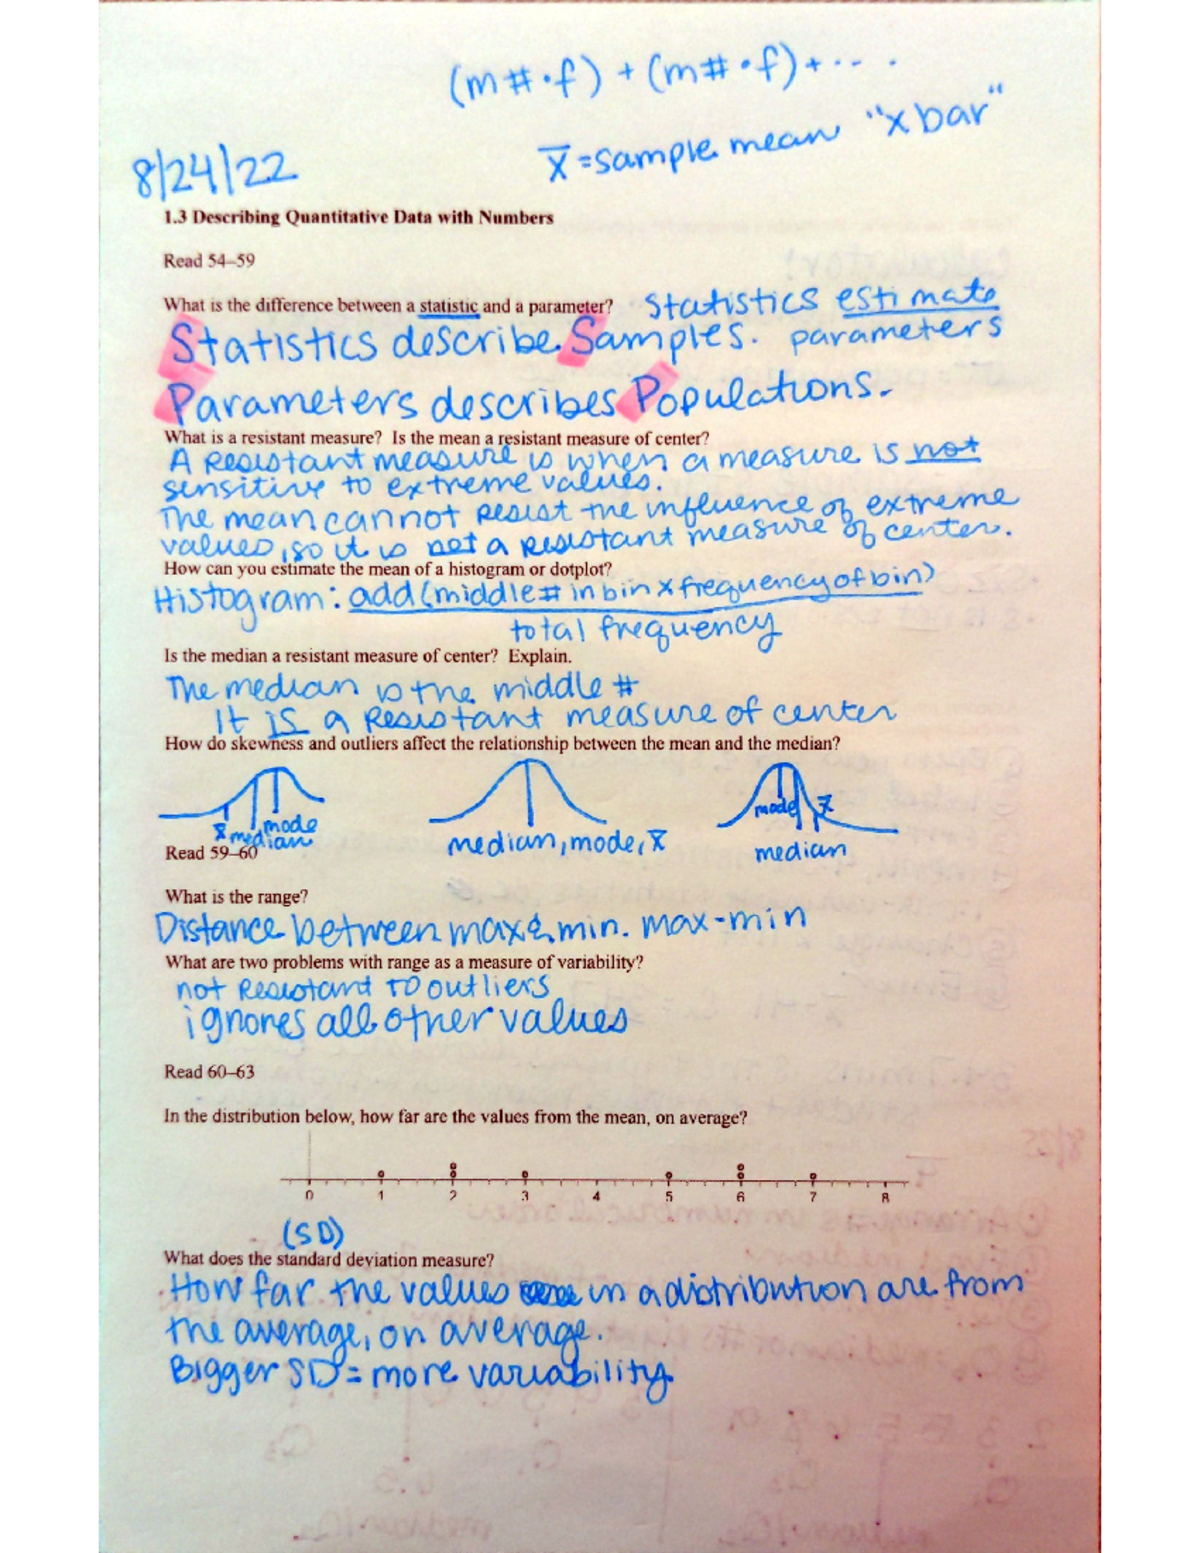 (m#·f) + (m#·f)+....
x̄=sample mean "x bar"
8/24/22
1.3 Describing Quantitative Data with Numbers
Read 54–59
What is the difference between a statistic and a parameter? Statistics estimate
Statistics describe Samples. parameters
Parameters describes Populations.
What is a resistant measure? Is the mean a resistant measure of center?
A Resistant measure is when a measure is not
sensitive to extreme values.
The mean cannot resist the influence of extreme
values, so it is not a resistant measure of center.
How can you estimate the mean of a histogram or dotplot?
Histogram: add(middle# in bin x frequency of bin)
total frequency
Is the median a resistant measure of center? Explain.
The median is the middle #
It is a Resistant measure of center
How do skewness and outliers affect the relationship between the mean and the median?
x̄ median mode
median, mode, x̄
mode x̄
median
Read 59–60
What is the range?
Distance between max & min. max-min
What are two problems with range as a measure of variability?
not Resistant to outliers
ignores all other values
Read 60–63
In the distribution below, how far are the values from the mean, on average?
0 1 2 3 4 5 6 7 8
(SD)
What does the standard deviation measure?
How far the values in a distribution are from
the average, on average.
Bigger SD = more variability.